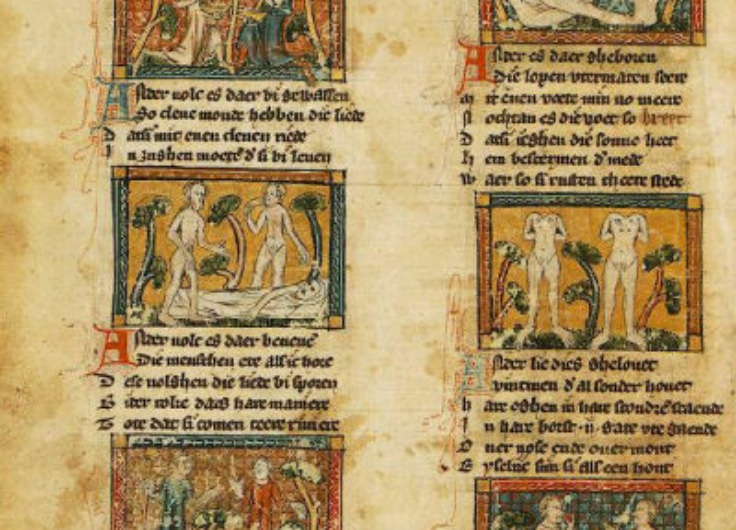 Ander volc es daer bi gewassen
So clene monde hebben die liede
Dats mit enen clenen riede
In zughen moete d si bi leuen
Ander volc es daer beneuē
Die menschen ete alsic hore
Dese volghen die liede bi sporen
Ende dat si comen teere riuiere
Ander es daer gheboren
Die lopen vtermaten seere
mit enen voete min no meere
Nochtan es die voet so breet
Dats ieghen die sonne heet
hem bescermen d mede
waer so si rusten theere stede
Ander lie dies ghelouet
vintmen d al sonder houet
hare oghen in hare scoudrē staende
In hare borst .ij. gate vte gaende
Ouer nose ende ouer mont
Eyseliic siin si als een hont